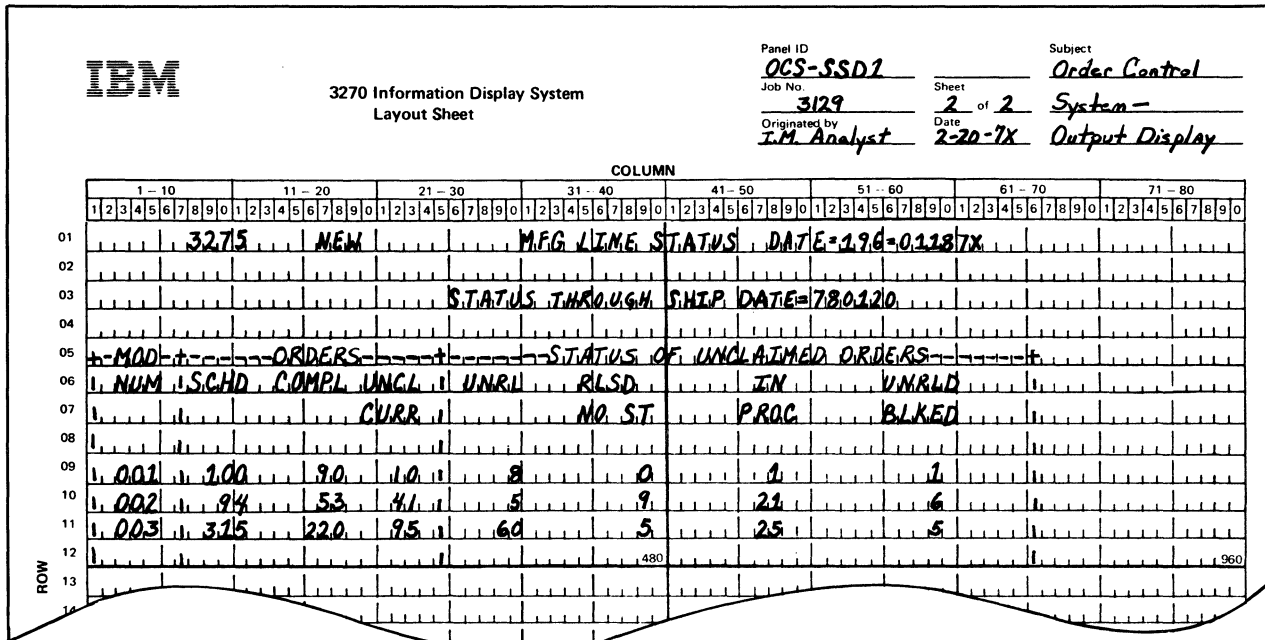 IBM
3270 Information Display System
Layout Sheet
Panel ID
OCS-SSD1
Job No.
3129
Originated by
I.M. Analyst
Sheet
2 of 2
Date
2-20-7X
Subject
Order Control
System-
Output Display
COLUMN
1-10 11-20 21-30 31-40 41-50 51-60 61-70 71-80
1 2 3 4 5 6 7 8 9 0 1 2 3 4 5 6 7 8 9 0 1 2 3 4 5 6 7 8 9 0 1 2 3 4 5 6 7 8 9 0 1 2 3 4 5 6 7 8 9 0 1 2 3 4 5 6 7 8 9 0 1 2 3 4 5 6 7 8 9 0 1 2 3 4 5 6 7 8 9 0
ROW
01 3275 NEW MFG LINE STATUS DATE=196=01187X
02
03 STATUS THROUGH SHIP DATE=780120
04
05 +-MOD-+------ORDERS------+-------STATUS OF UNCLAIMED ORDERS-------+
06 | NUM | SCHD COMPL UNCL | UNRL RLSD IN UNRLD |
07 | | CURR | NO ST PROC BLKED |
08 | | | |
09 | 001 | 100 90 10 | 8 0 1 1 |
10 | 002 | 94 53 41 | 5 9 21 6 |
11 | 003 | 315 220 95 | 60 5 25 5 |
12 | | | 480 | 960
13
14